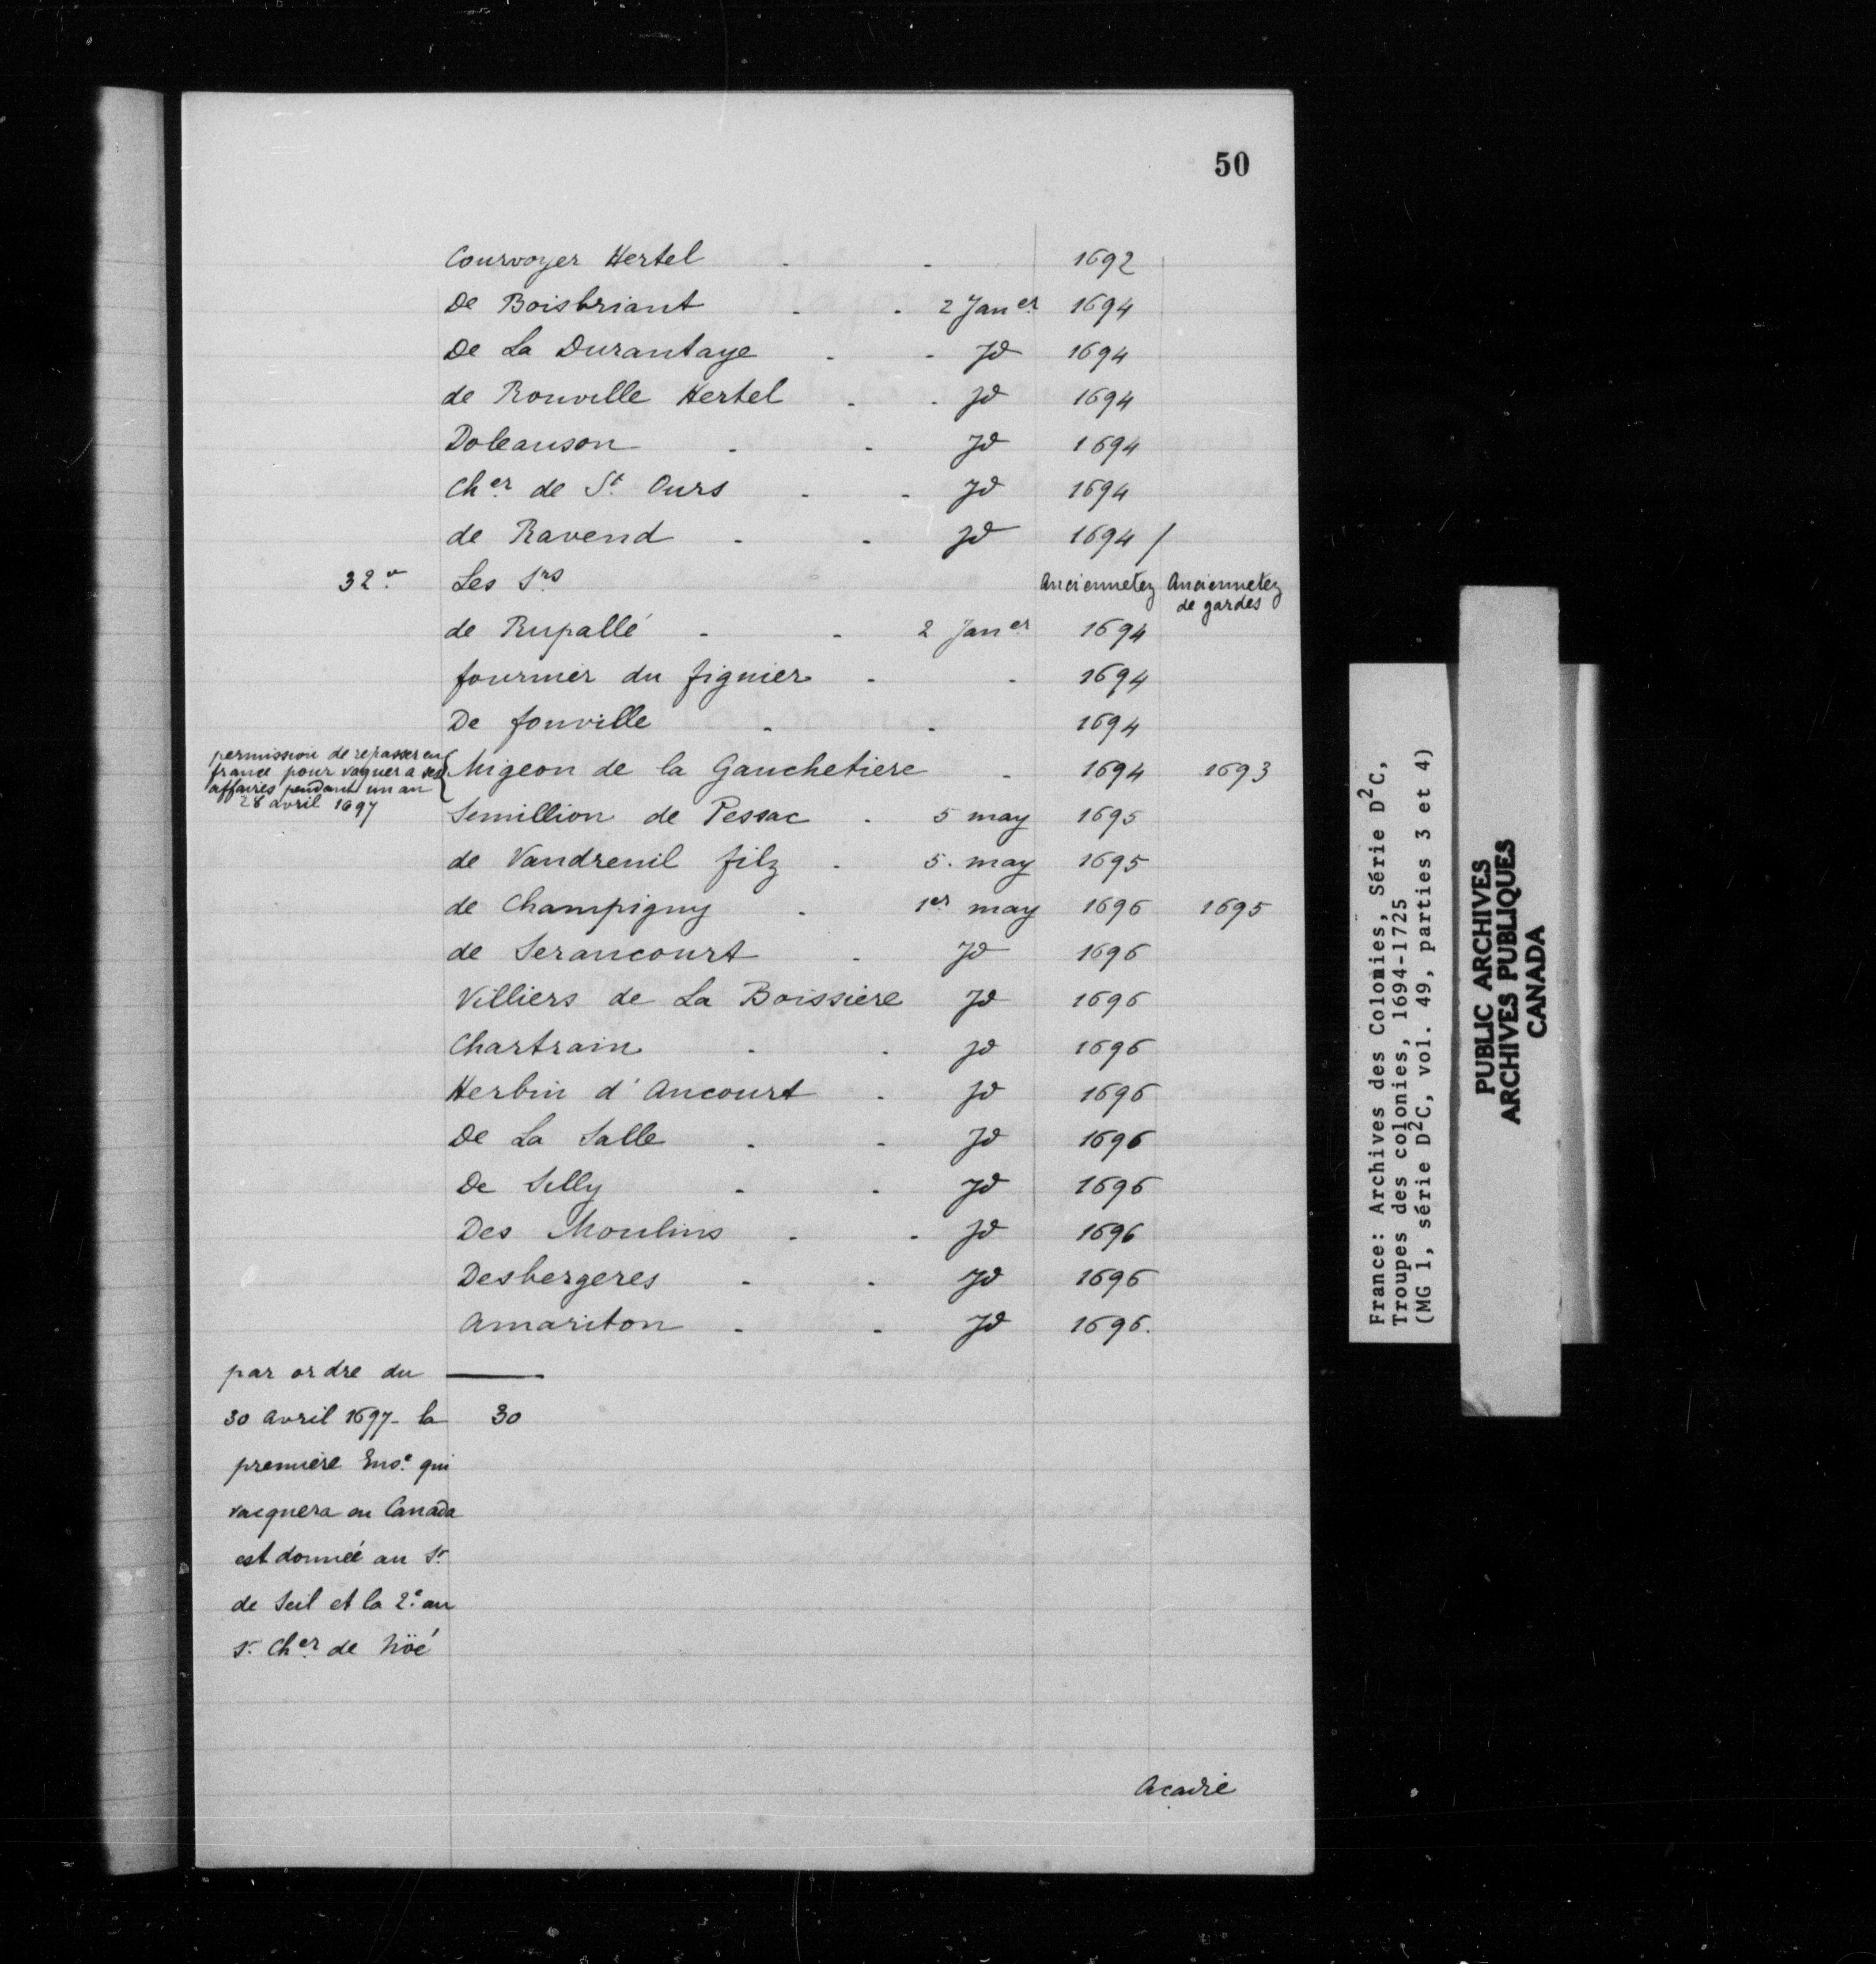 50
Courvoyer Hertel - - 1692
De Boisbriant - - 2 Jan.er 1694
De La Durantaye - - Jd 1694
de Rouville Hertel - - Jd 1694
Doleanson - - Jd 1694
Ch.er de St. Ours - - Jd 1694
de Ravend - - Jd 1694 /
32.v Les Srs Anciennetez Anciennetez
de gardes
de Rupallé - - 2 Jan.er 1694
fournier du figuier - - 1694
De Jonville - - 1694
permission de repasser en
france pour vaquer a ses
affaires pendant un an
28 avril 1697
Migeon de la Gauchetiere - 1694 1693
Semillion de Pessac - 5 may 1695
de Vaudreuil filz - 5. may 1695
de Champigny - 1er may 1696 1695
de Serancourt - Jd 1696
Villiers de La Boissiere Jd 1696
Chartrain - - Jd 1696
Herbin d'Ancourt - Jd 1696
De La Salle - - Jd 1696
De Silly - - Jd 1696
Des Moulins - - Jd 1696
Desbergeres - - Jd 1696
Amariton - - Jd 1696.
par ordre du
30 avril 1697 - la 30
premiere Ens.e qui
vacquera en Canada
est donnée au Sr.
de Seil et la 2.e au
Sr. Ch.er de Nöé
Acadie
France: Archives des Colonies, Série D²C,
Troupes des colonies, 1694-1725
(MG 1, série D²C, vol. 49, parties 3 et 4)
PUBLIC ARCHIVES
ARCHIVES PUBLIQUES
CANADA